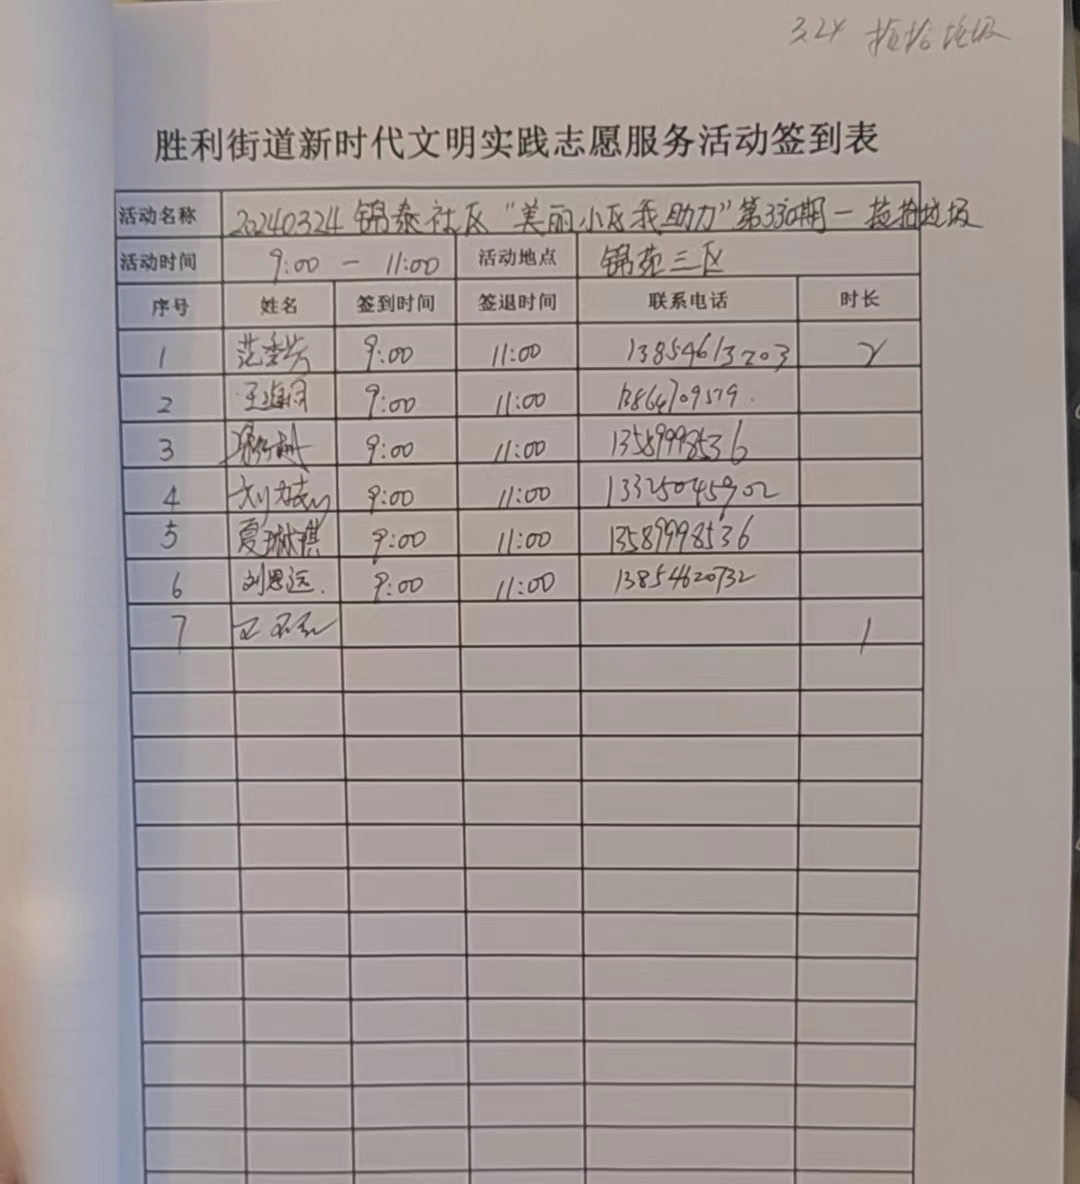 3.24 捡拾垃圾
胜利街道新时代文明实践志愿服务活动签到表
活动名称 20240324锦泰社区“美丽小区我助力”第330期一捡拾垃圾
活动时间 9:00 — 11:00 活动地点 锦苑三区
序号 姓名 签到时间 签退时间 联系电话 时长
1 9:00 11:00 13854613203 2
2 9:00 11:00 13864709579.
3 9:00 11:00 13589998536
4 9:00 11:00 13325045902
5 夏琳琪 9:00 11:00 13589998536
6 刘思远. 9:00 11:00 13854620732
7 1